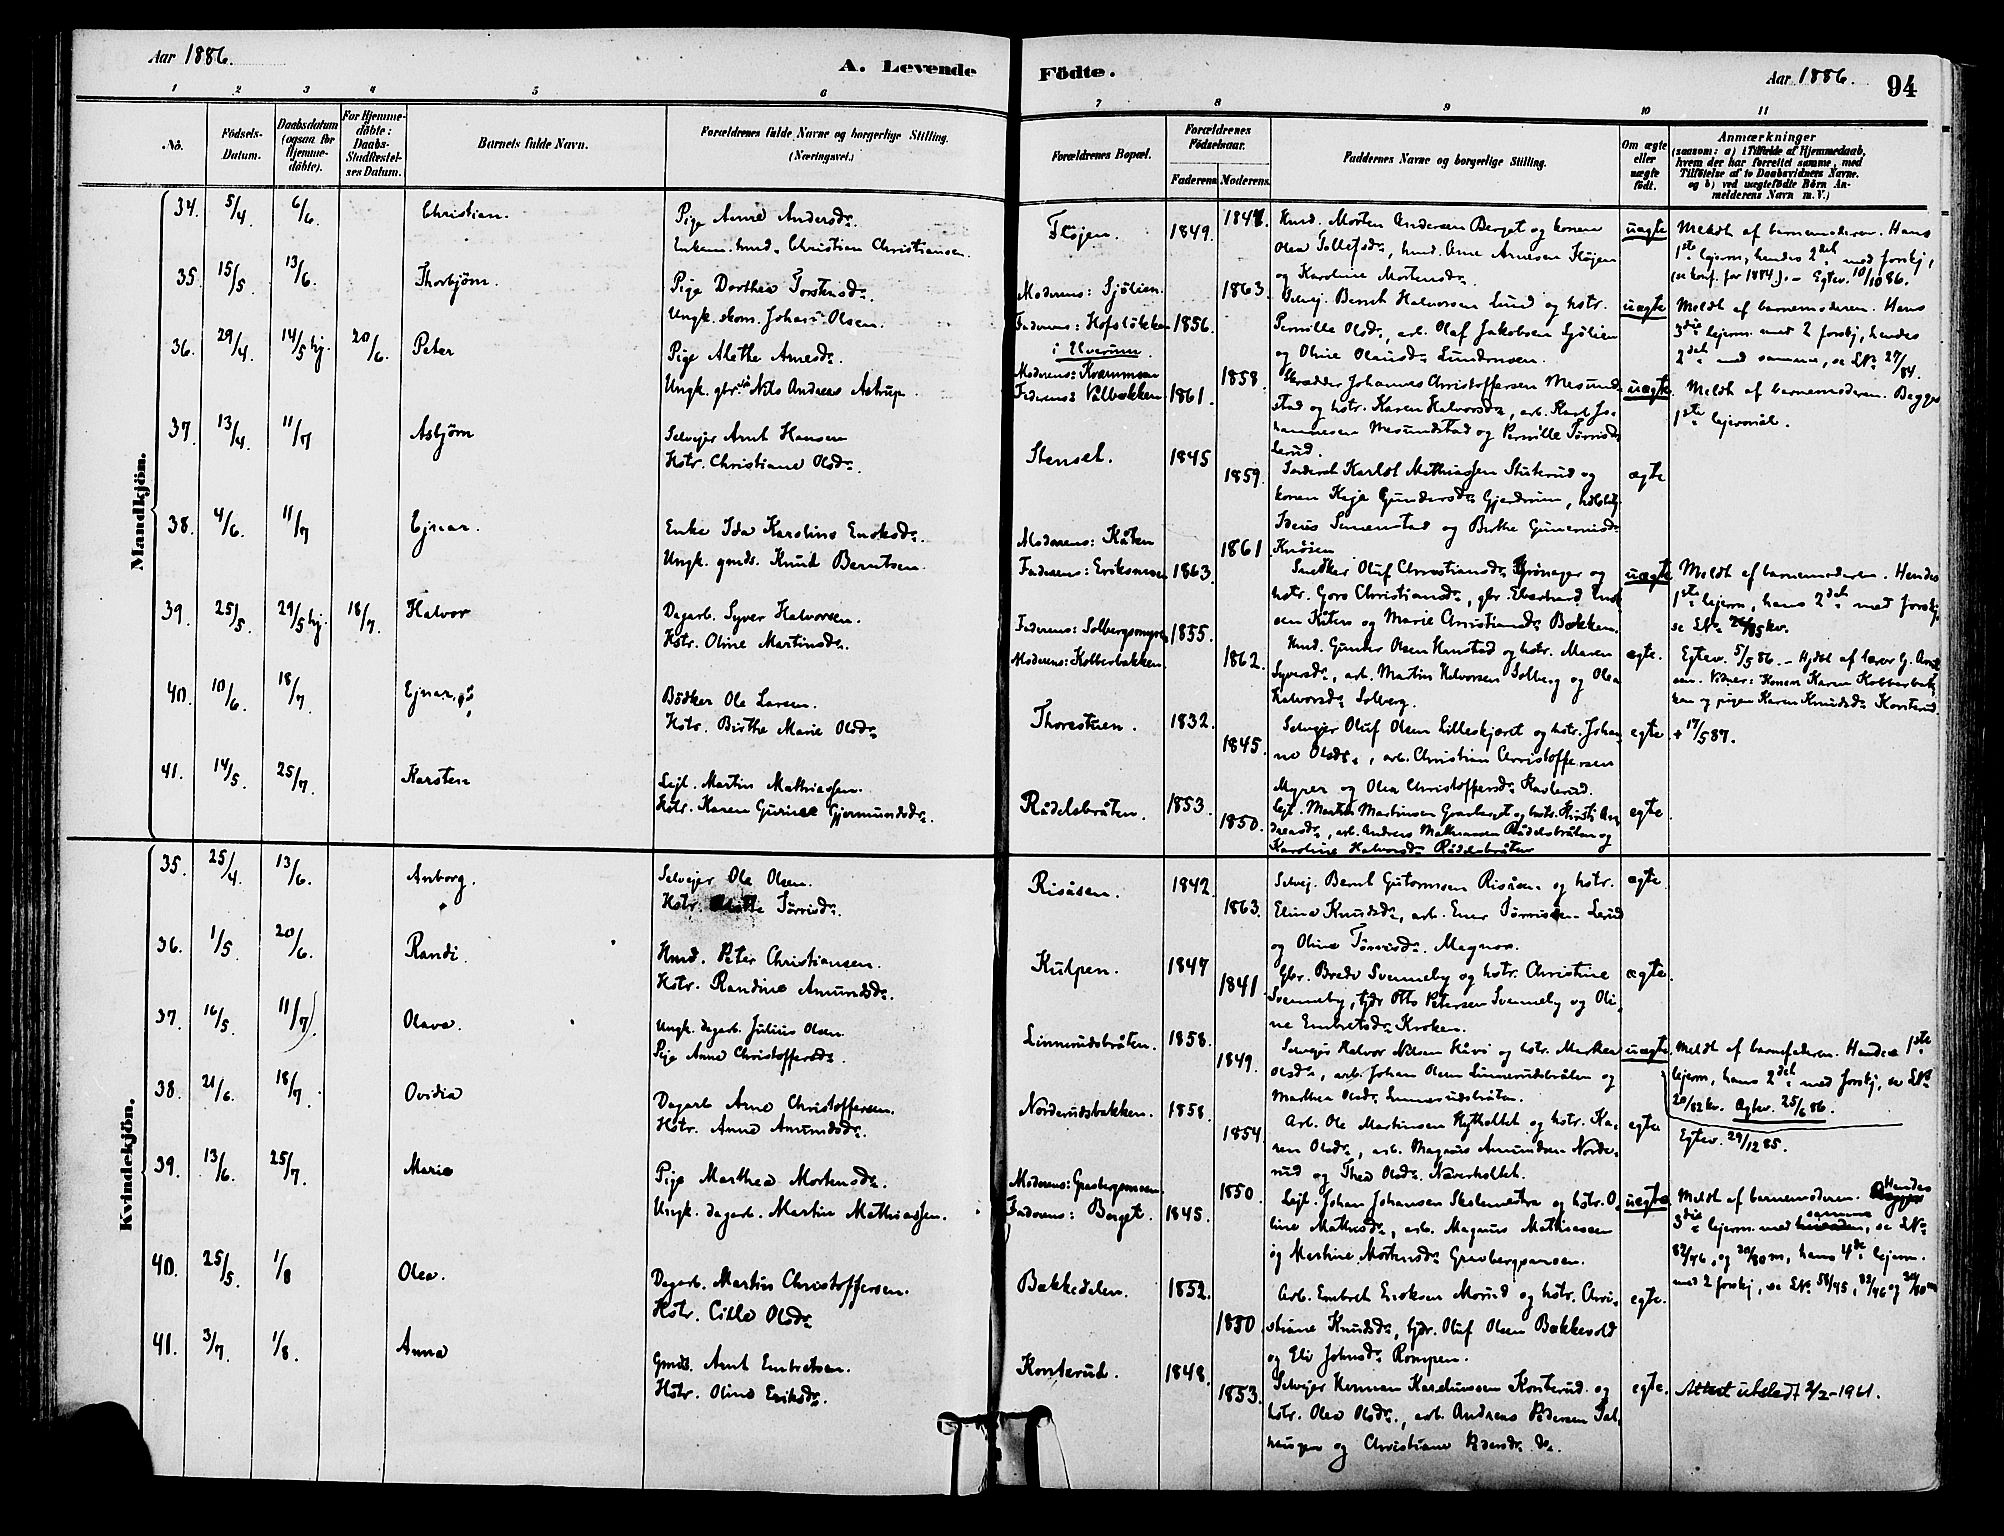 Aar 1886.
A. Levende Födte.
Aar 1886.
94
1 2 3 4 5 6 7 8 9 10 11
No.
Födsels-Datum.
Daabsdatum (ogsaa for Hjemme-döbte).
For Hjemme-döbte: Daabs-Stadfæstel-ses Datum.
Barnets fulde Navn.
Forældrenes fulde Navne og borgerlige Stilling.
(Næringsvei.)
Forældrenes Bopæl.
Forældrenes Födselsaar.
Faderens. Moderens.
Faddernes Navne og borgerlige Stilling.
Om ægte eller uægte födt.
Anmærkninger
(saasom: a) i Tilfælde af Hjemmedaab,
hvem der har forrettet samme, med
Tilföielse af to Daabsvidners Navne.
og b) ved uægtefödte Börn An-
melderens Navn m. V.)
Mandkjön.
34. 5/4 6/6. Christian. Pige Anne Andersd.
Enkem. husd. Christian Christiansen.
Fløjen. 1849. 1847
Husd. Morten Andersen Berget og konen
Olea Tollefsd., husd. Arne Arnesen Fløjen
og Karoline Mortensd.
uægte
Meldt af barnemoderen. Hans
1ste lejerm, hendes 2det med forskj,
(se konf. for 1884). - Egtev. 10/10 86.
35. 15/5 13/6. Thorbjørn. Pige Dorthea Torstensd.
Ungk. skom. Johan Olsen.
Moderens: Sjölien.
Faderens: Hofslökken
i Elverum.
1856. 1863.
Selvej. Bernt Halvorsen Lund og hstr.
Pernille Olsd., arb. Olaf Jakobsen Sjölien
og Oline Olausd.
uægte
Meldt af barnemoderen. Hans
3die lejerm. med 2 forskj, hendes
2det med samme, se LNo 27/84.
36. 29/4. 14/5 hj. 20/6. Peter Pige Alethe Arnesd.
Ungk. gbr. Nils Andreas Astrup.
Moderens: Kvæmmen
Faderens: Vålbakken. 1861. 1858.
Skrædder Johannes Christoffersen Mesund-
stad og hstr. Karen Halvorsd., arb. Karl Jo-
hannesen Mesundstad og Pernille Tørrisd.
Lerud.
uægte
Meldt af barnemoderen. Begges
1ste lejermål.
37. 13/4. 11/7 Asbjørn Selvejer Arnt Hansen
Hstr. Christiane Olsd.
Stenset. 1845 1859.
Karl Mathiassen Stuterud og
konen Kaja Gundersd. Gjerdrum,
og Birthe
Knösen
ægte
38. 4/6. 11/7 Ejnar. Enke Ida Karoline Eriksd.
Ungk. gmds. Knud Berntsen.
Moderens: Kåten
Faderens: Eriksmoen 1863. 1861
Snedker Oluf Christians. Grönager og
hstr. Goro Christiansd., gbr. Eberhard Erik
sen Kåten og Marie Christiansd. Bakken.
uægte
Meldt af barnemoderen. Hendes
1ste lejerm, hans 2det med forskj.
se LNo 26/85 kv.
39. 25/5. 29/5 hj. 18/7. Halvor Dagarb. Syver Halvorsen.
Hstr. Oline Martinsd.
Faderens: Solbergsmyren 1855.
Moderens: Kolberbakken. 1862.
Husd. Gunder Olsen Hanstad og hstr. Maren
Syversd., arb. Martin Halvorsen Solberg og Olea
Halvorsd. Solberg.
ægte.
Egtev. 5/5 86. - Hjdbt af lærer G. Arnt
sen. Vidner: Konen Karen Kolberbak
ken og pigen Karen Knudsd. Konterud.
40. 10/6. 18/7. Ejnar. Bödker Ole Larsen.
Hstr. Birthe Marie Olsd.
Thorestuen. 1832. 1845.
Selvejer Oluf Olsen Lilleskjæret og hstr. Johan
ne Olsd., arb. Christian Christoffersen
Myrer og Olea Christoffersd.
egte.
+ 17/5 87.
41. 14/5. 25/7. Karsten Lejl. Martin Mathiassen.
Hstr. Karen Gurine Gjermundsd.
Rådelsbråten. 1853. 1850.
Lejl. Martin Martinsen Gravberget og hstr. Kirsti An-
dreasd., arb. Andreas Mathiassen Rådelsbråten og
Karoline Halvorsd. Rådelsbråten
egte.
Kvindekjön.
35. 25/4. 13/6. Anborg. Selvejer Ole Olsen.
Hstr. Tørrisd.
Risåsen. 1842. 1863.
Selvej. Bernt Gutormsen Risåsen og hstr.
Eline Knudsd., arb. Ener Tørrisen Lerud
og Oline Tørrisd. Magnor.
ægte.
36. 1/5. 20/6. Randi. Husd. Peter Christiansen.
Hstr. Randine Amundsd.
Kulpen. 1847 1841.
Gbr. Brede Svenneby og hstr. Christine
Svenneby, tjdr. Otto Petersen Svenneby og Oli-
ne Embretsd. Kroken.
ægte.
37. 16/5. 11/7). Olava. Ungk. dagarb. Julius Olsen
Pige Anne Christoffersd.
Linnerudsbråten. 1858. 1849.
Selvejer Halvor Nilsen Huvi og hstr. Marthea
Olsd., arb. Johan Olsen Linnerudsbråten og
Marthea Olsd. Linnerudsbråten.
uægte.
Meldt af barnefaderen. Hendes 1ste
lejerm, hans 2det med forskj, se LNo
20/82 kv. Egtev. 25/6 86.
38. 21/6. 18/7. Ovidia Dagarb Arne Christoffersen.
Hstr. Anne Amundsd.
Norderudsbakken. 1858. 1854.
Arb. Ole Martinsen Nytrollet og hstr. Ka-
ren Olsd., arb. Magnus Amundsen Norde-
rud og Thea Olsd. Næverholtet.
egte
Egtev. 29/12 85.
39. 13/6. 25/7. Marie Pige Marthea Mortensd.
Ungk. dagarb. Martin Mathiassen.
Moderens: Gravbergsmoen. 1850.
Faderens: Berget. 1845.
Lejl. Johan Johansen Skolemestra og hstr. O-
line Mathisd., arb. Magnus Mathisesen
og Martine Mortensd. Gravbergsmoen.
uægte
Meldt af barnemoderen. Hendes
3die lejerm. med samme, se LNo
82/76, og 30/80 m, hans 4de lejerm.
med 2 forskj, se LNo 58/75, 82/76 og 30/80 m
40. 25/5. 1/8 Olea. Dagarb. Martin Christoffersen.
Hstr. Cille Olsd.
Bakkedalen. 1852. 1850.
Arb. Embret Eriksen Morud og hstr. Chri-
stiane Knudsd., tjdr. Oluf Olsen Bakkevold
og Eli Johnsd. Rompen.
egte.
41. 3/7. 1/8. Anna Gmds. Arnt Embretsen.
Hstr. Oline Eriksd.
Konterud. 1848. 1853.
Selvejer Herman Konterud og
hstr. Olea Olsd., arb. Andreas Pedersen Sol-
haugen og Christiane Pedersd. do.
egte.
Attest utstedt 2/2-1961.